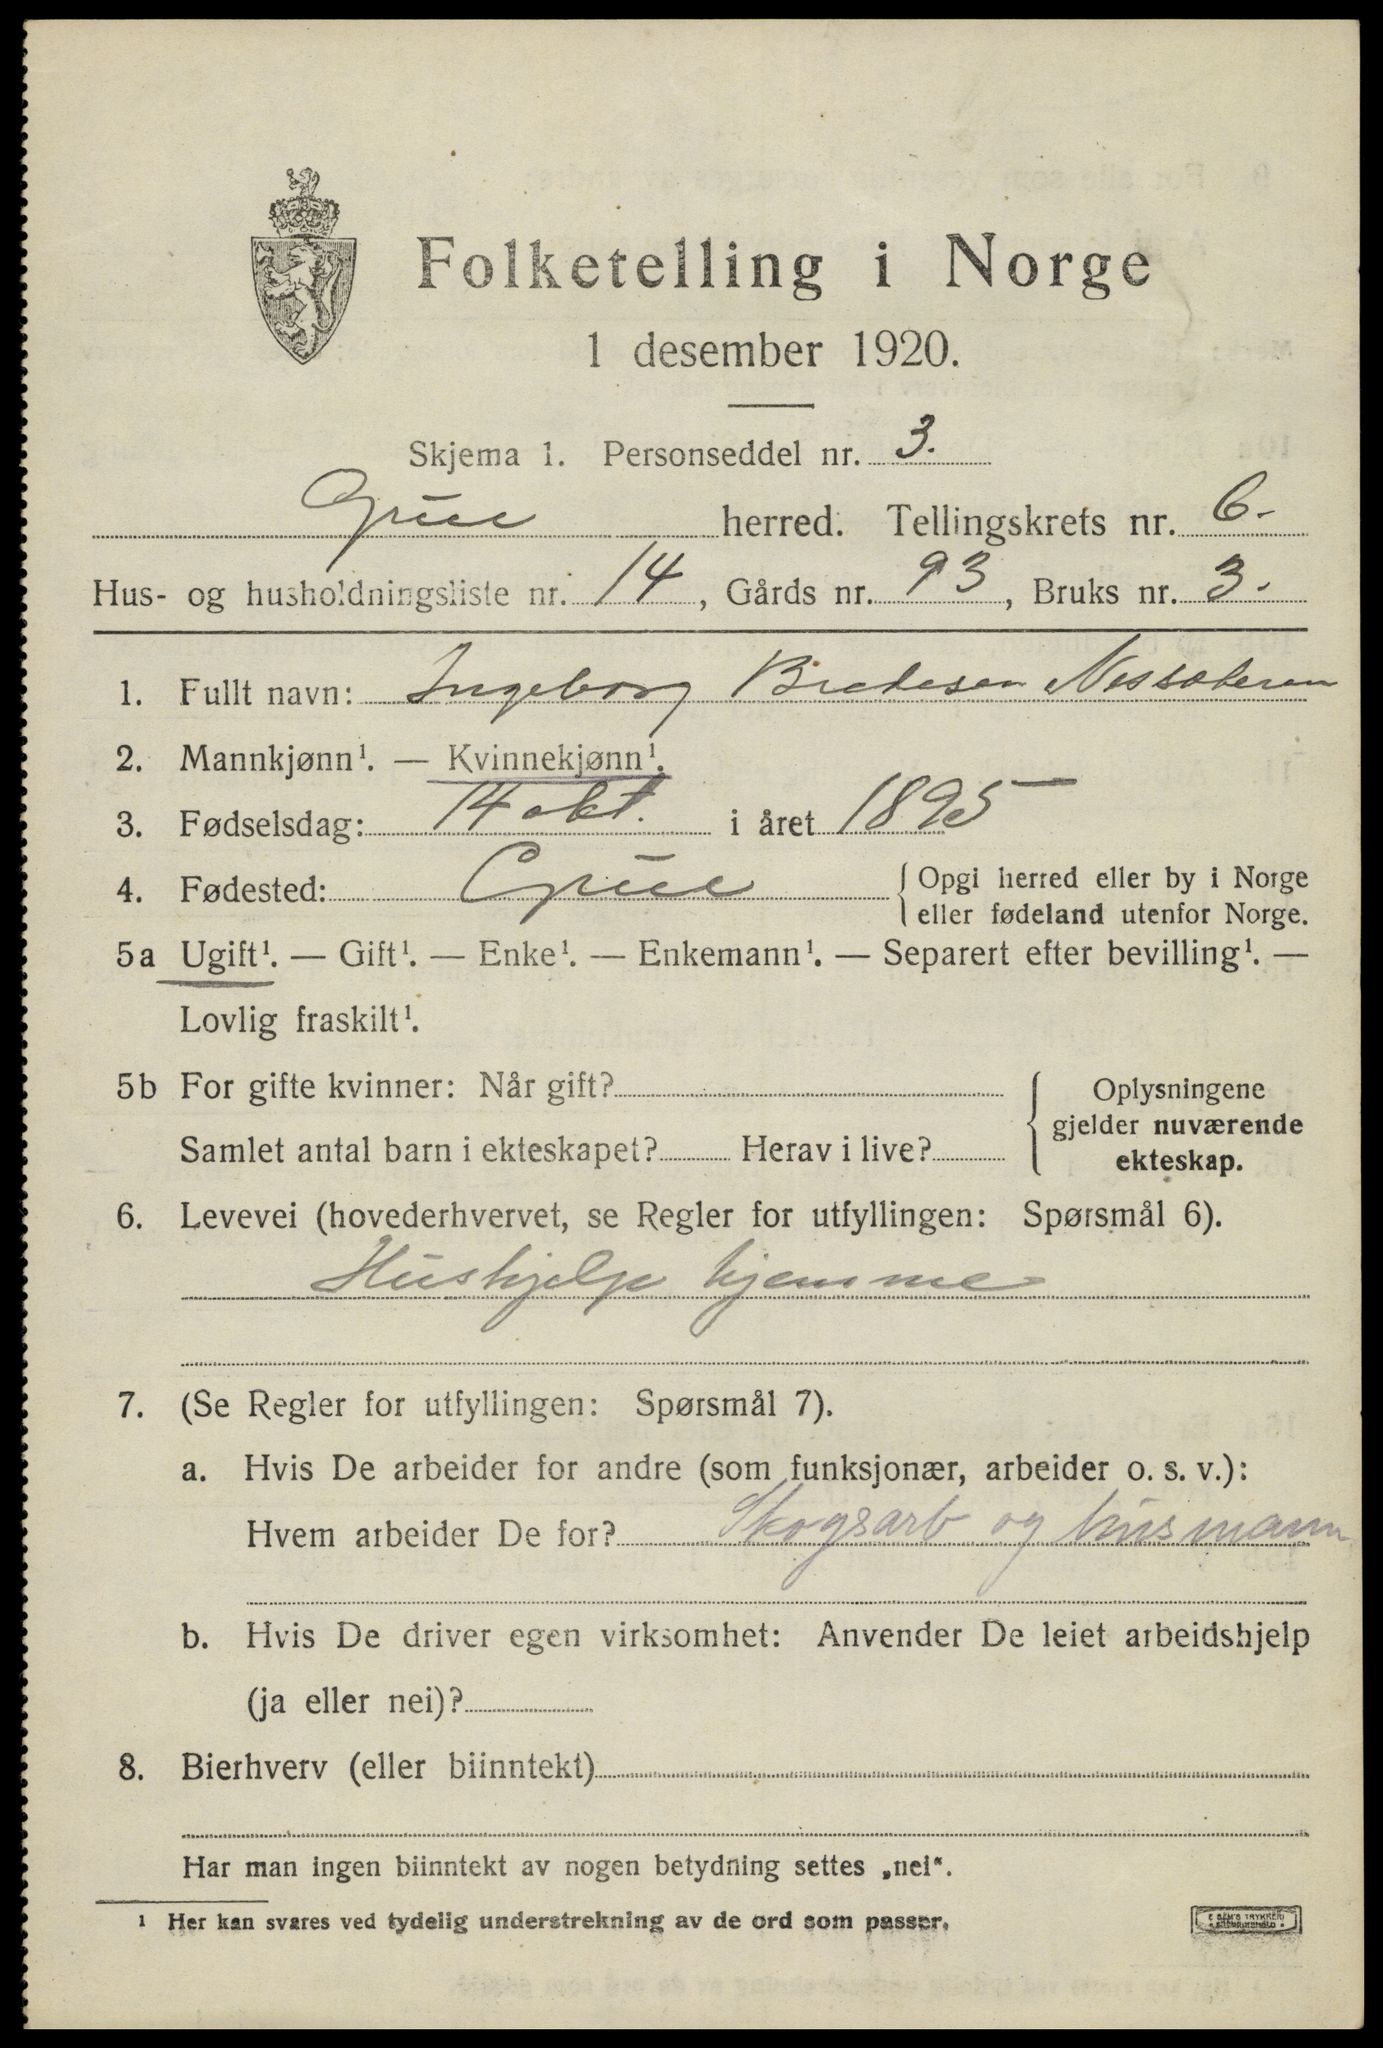 Folketelling i Norge
1 desember 1920.
Skjema 1. Personseddel nr. 3.
Grue herred. Tellingskrets nr. 6.
Hus- og husholdningsliste nr. 14, Gårds nr. 93, Bruks nr. 3.
1. Fullt navn: Ingeborg Bredesen Nessæteren
2. Mannkjønn¹. — Kvinnekjønn¹.
3. Fødselsdag: 14 okt. i året 1895
4. Fødested: Grue { Opgi herred eller by i Norge
eller fødeland utenfor Norge.
5a Ugift¹. — Gift¹. — Enke¹. — Enkemann¹. — Separert efter bevilling¹. —
Lovlig fraskilt¹.
5b For gifte kvinner: Når gift?
Samlet antal barn i ekteskapet? Herav i live?
{ Oplysningene
gjelder nuværende
ekteskap.
6. Levevei (hovederhvervet, se Regler for utfyllingen: Spørsmål 6).
Hushjelp hjemme
7. (Se Regler for utfyllingen: Spørsmål 7).
a. Hvis De arbeider for andre (som funksjonær, arbeider o. s. v.):
Hvem arbeider De for? Skogsarb og husmann
b. Hvis De driver egen virksomhet: Anvender De leiet arbeidshjelp
(ja eller nei)?
8. Bierhverv (eller biinntekt)
Har man ingen biinntekt av nogen betydning settes „nei“.
¹ Her kan svares ved tydelig understrekning av de ord som passer.